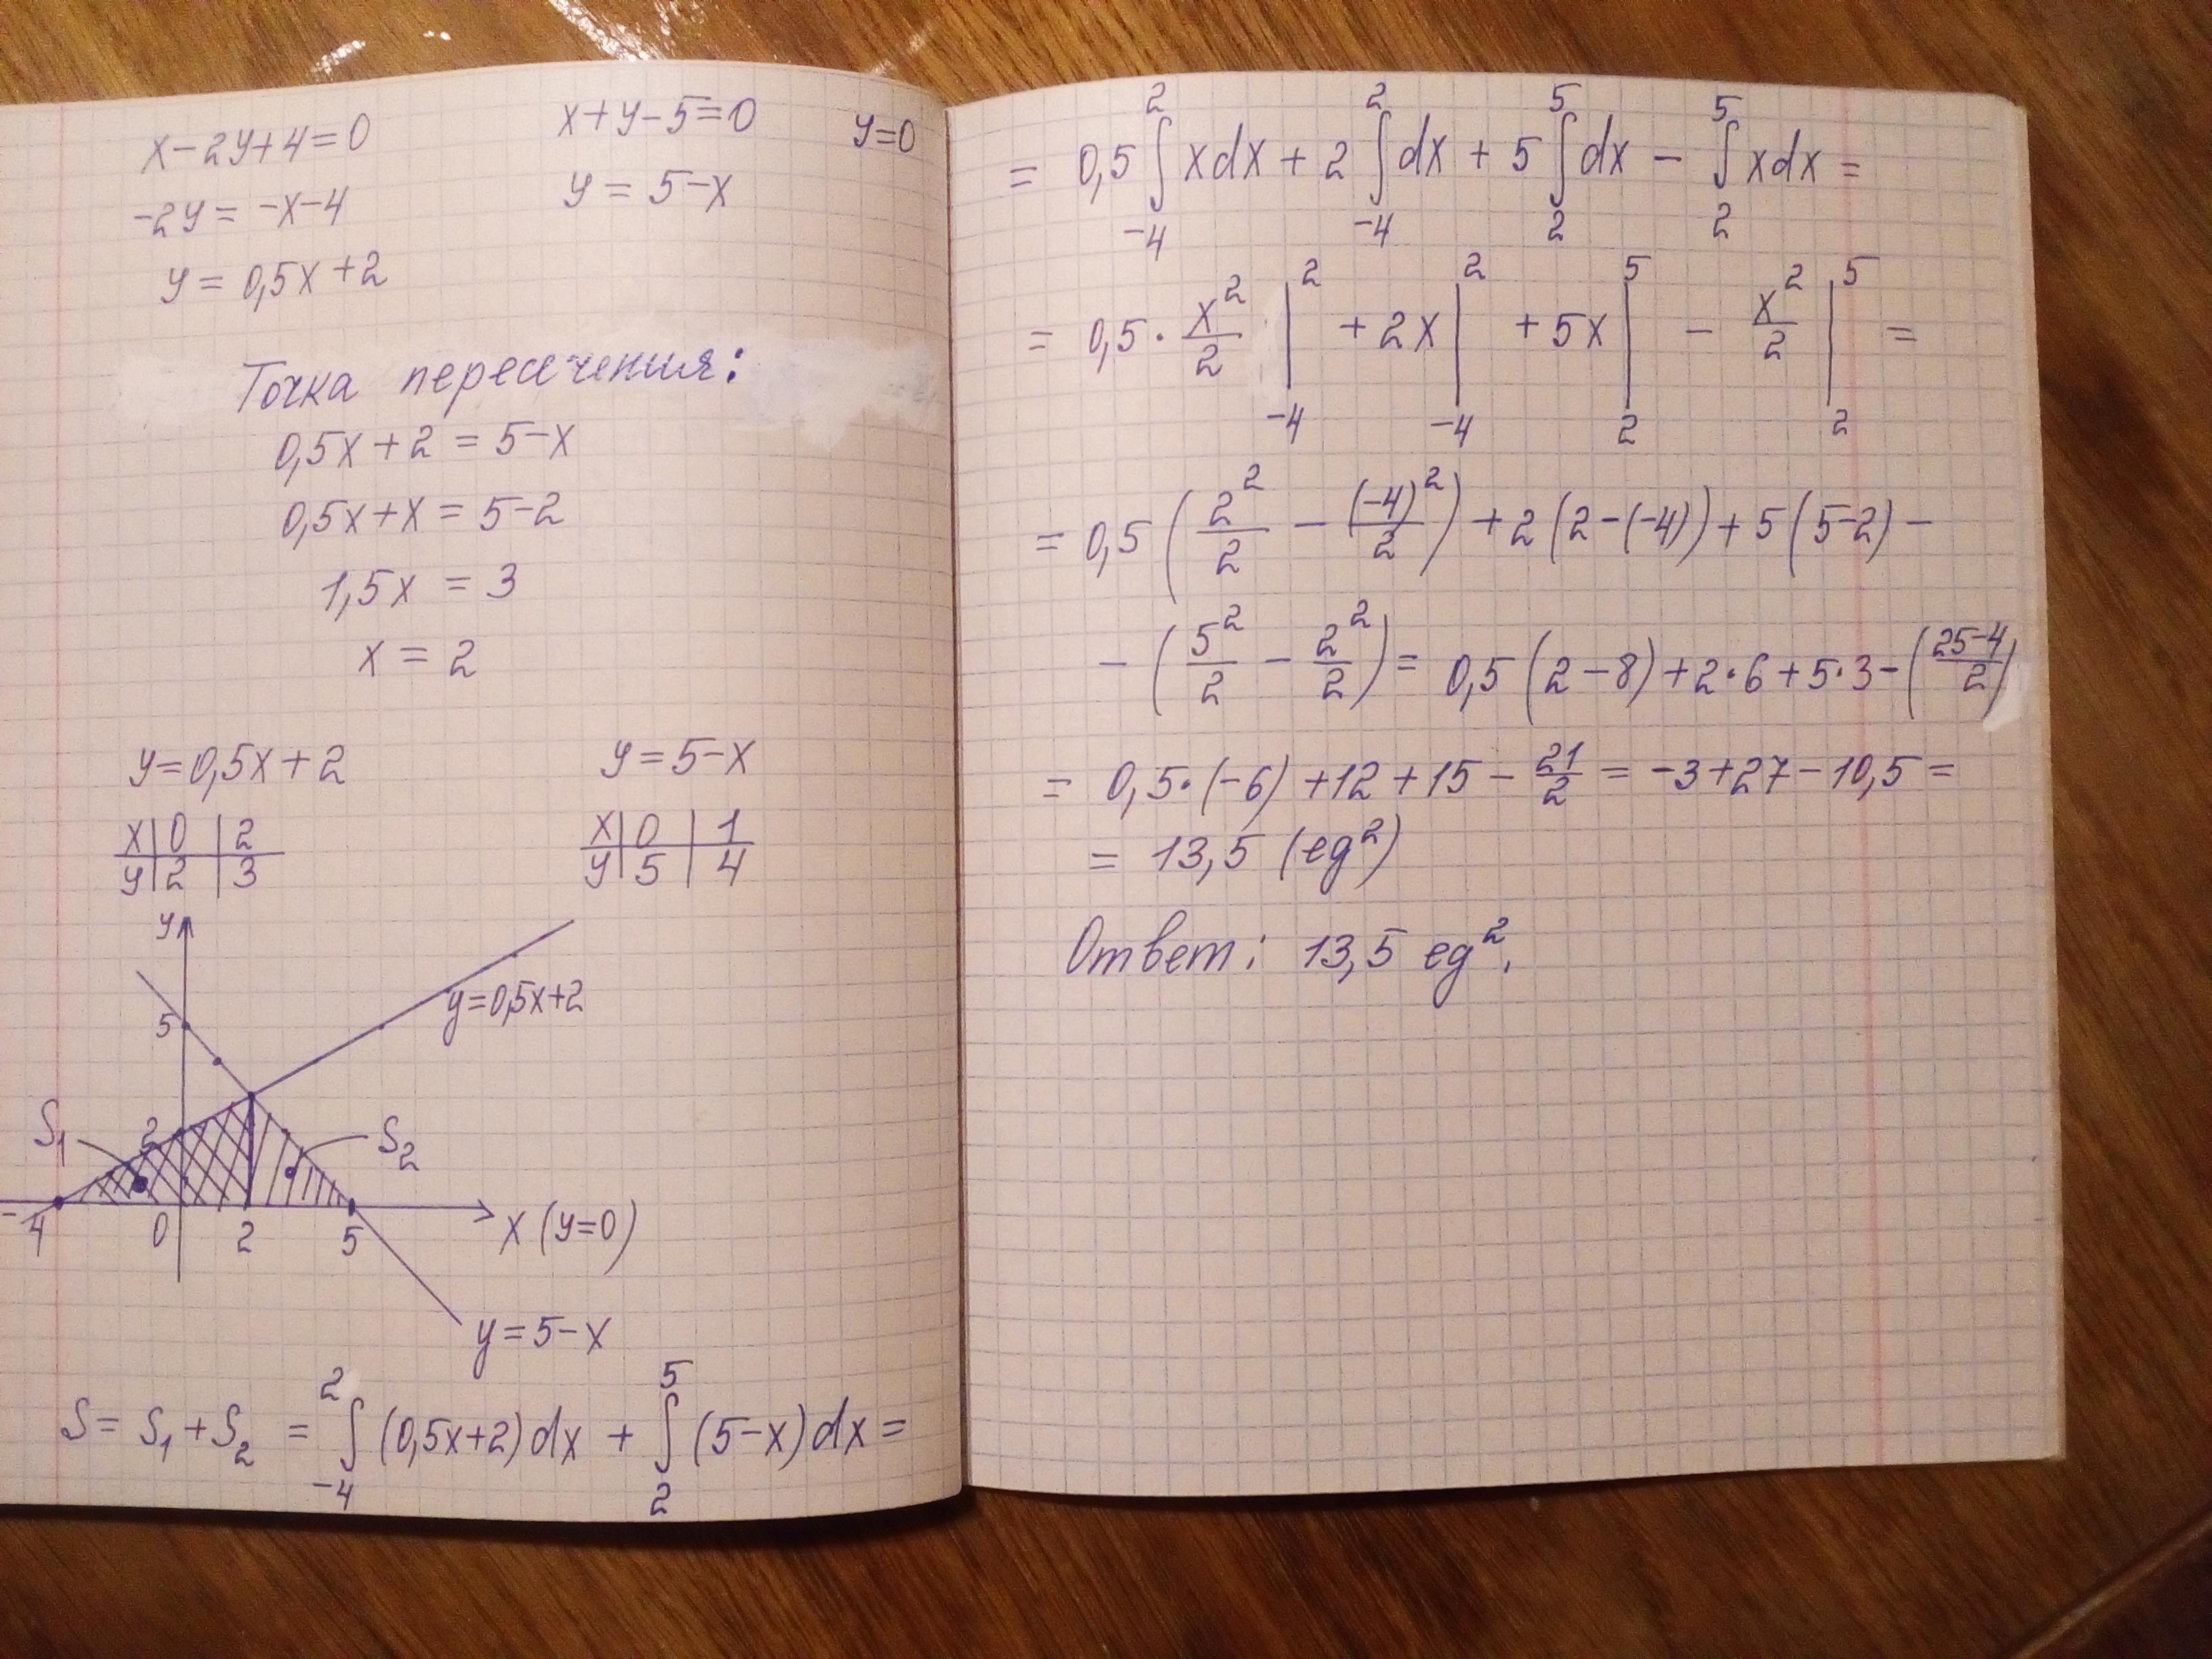 x-2y+4=0
x+y-5=0
y=0
-2y=-x-4
y=5-x
y=0,5x+2
Точка пересечения:
0,5x+2=5-x
0,5x+x=5-2
1,5x=3
x=2
y=0,5x+2
y=5-x
x|0|2
y|2|3
x|0|1
y|5|4
y
5
y=0,5x+2
S₁
2
S₂
-4
0
2
5
x (y=0)
y=5-x
S=S₁+S₂=∫₋₄²(0,5x+2)dx+∫₂⁵(5-x)dx=
=0,5∫₋₄²xdx+2∫₋₄²dx+5∫₂⁵dx-∫₂⁵xdx=
=0,5·x²/2|₋₄²+2x|₋₄²+5x|₂⁵-x²/2|₂⁵=
=0,5(2²/2-(-4)²/2)+2(2-(-4))+5(5-2)-
-(5²/2-2²/2)=0,5(2-8)+2·6+5·3-(25-4/2)
=0,5·(-6)+12+15-21/2=-3+27-10,5=
=13,5 (ед²)
Ответ: 13,5 ед².